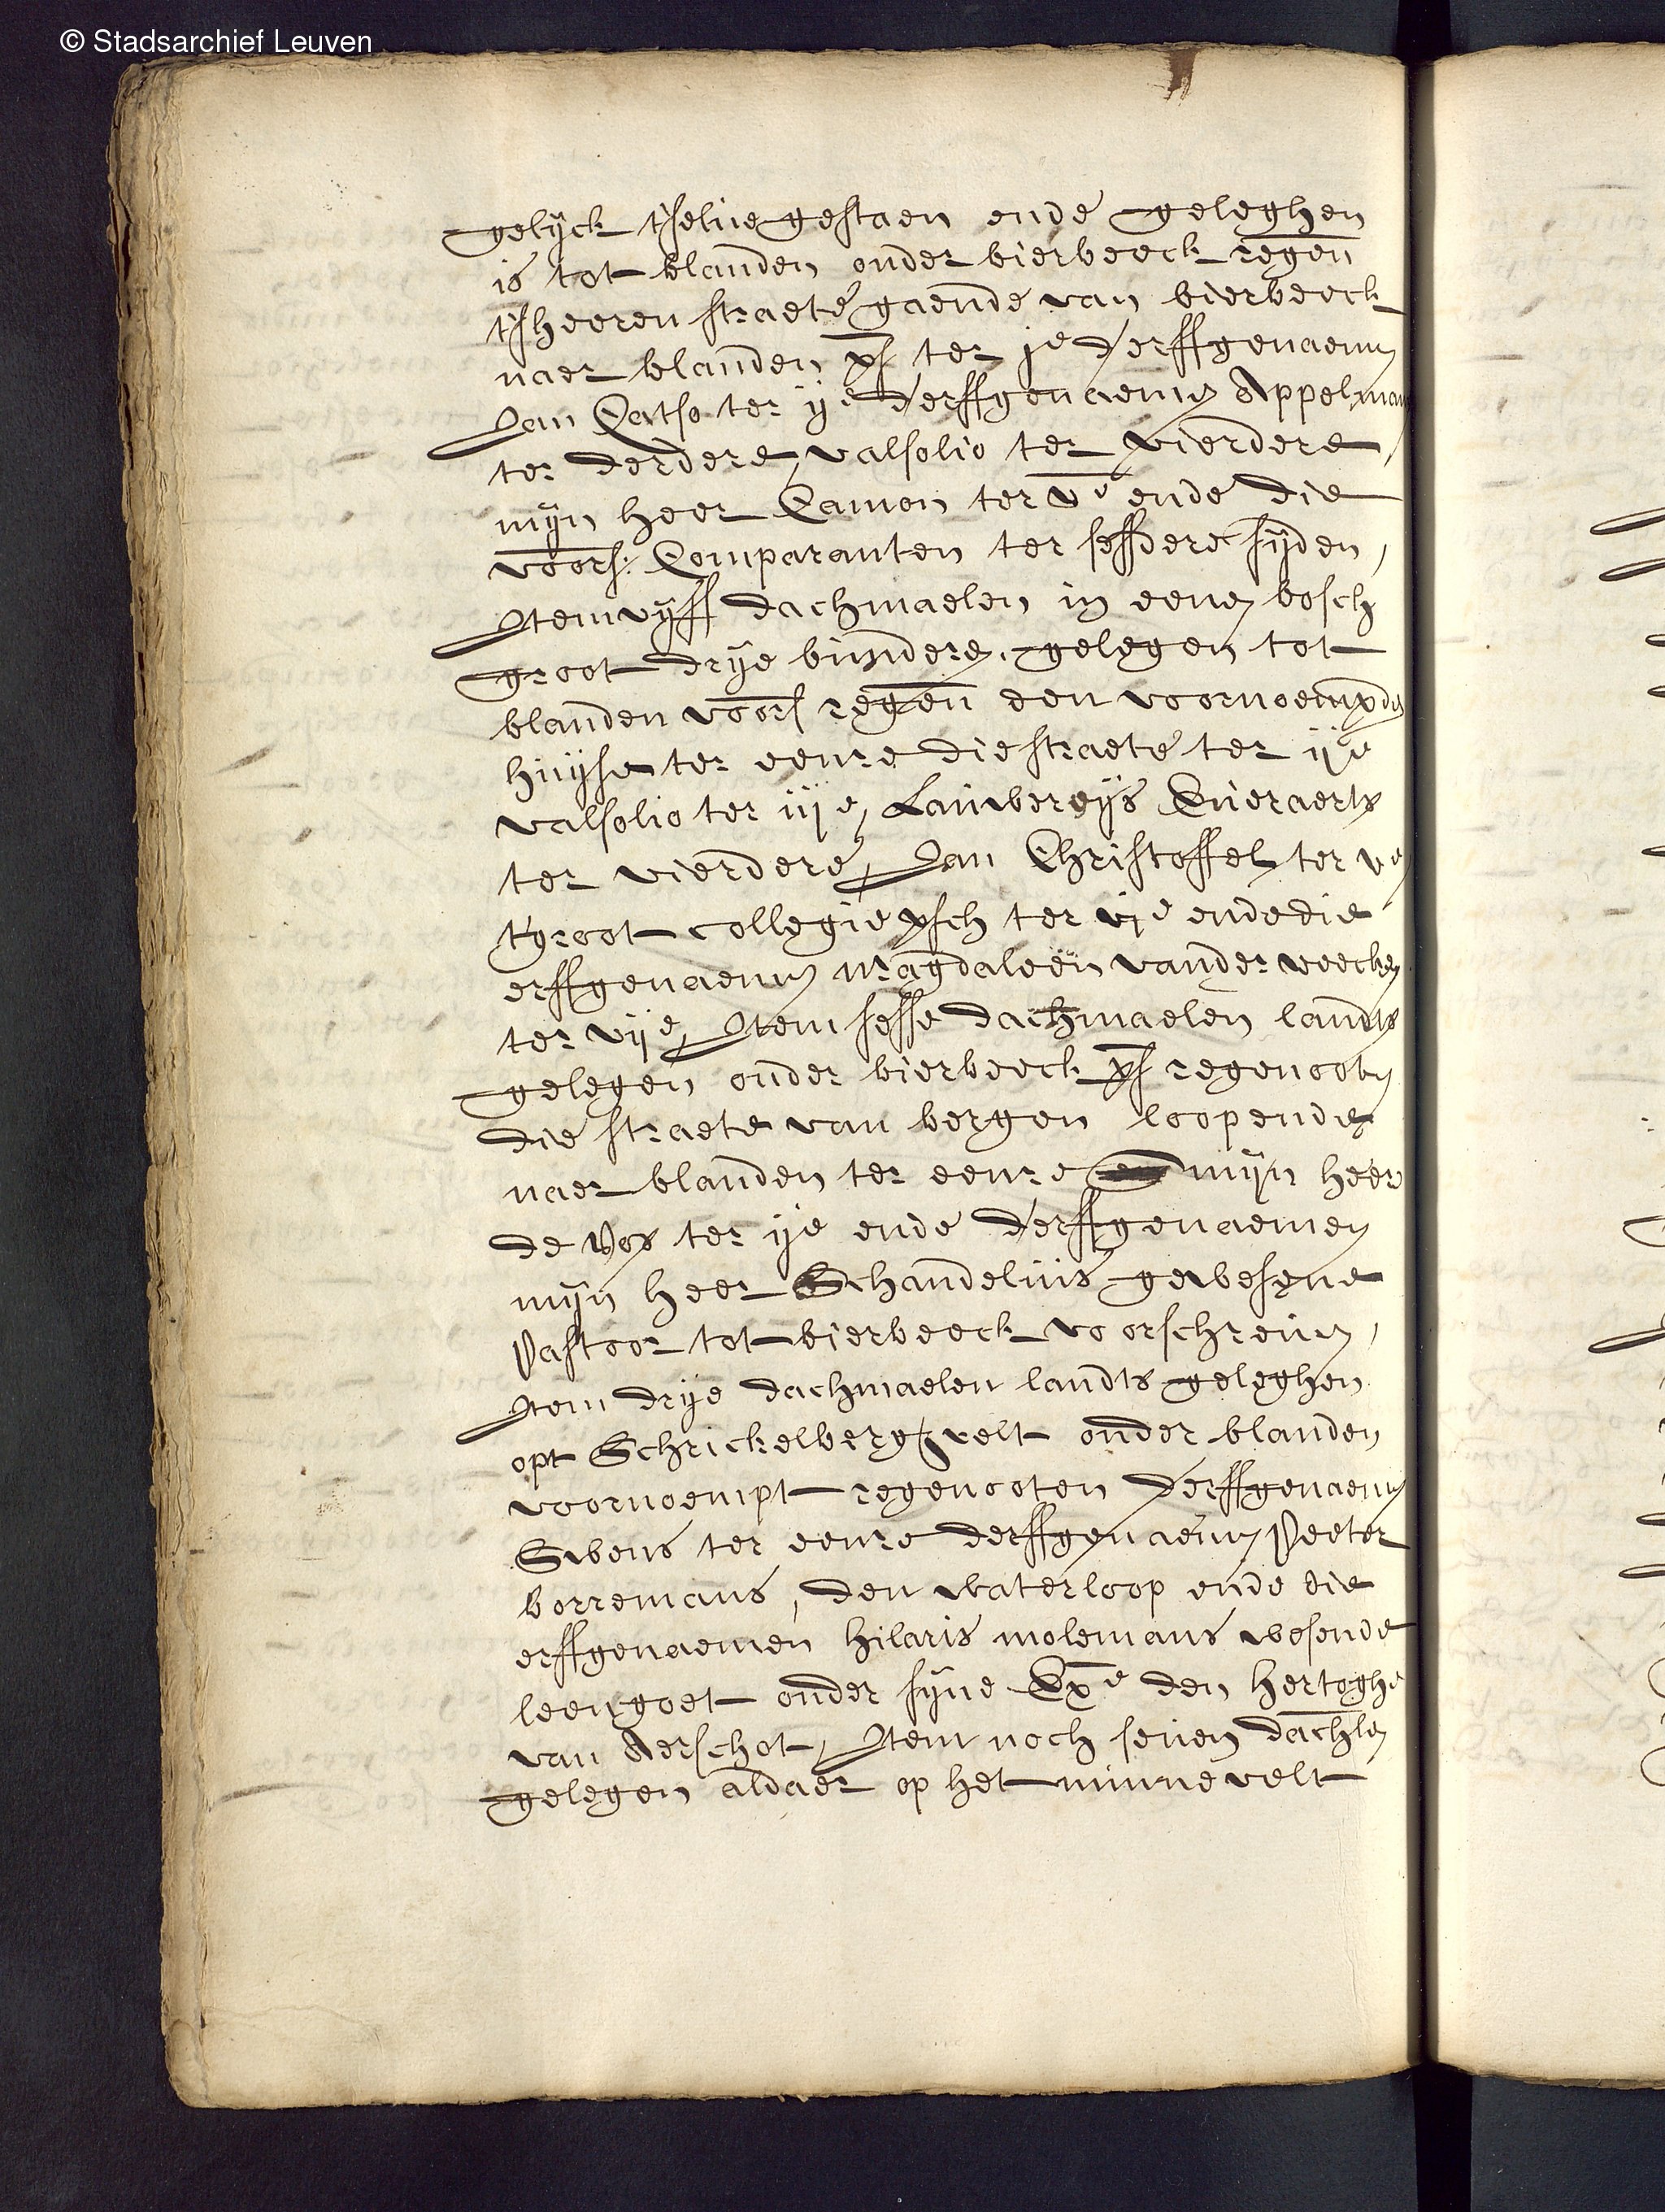 © Stadsarchief Leuven
gelijck tselue gestaen ende geleghen
is tot blanden onder bierbeeck regen
tsheeren straete gaende van bierbeeck
naer blanden ter je d'erffgenaemen
Jan ter ije d'erffgenaemen Appelman
ter derdere, valsolio ter vierdere,
mijn heer Camon ter ve ende die
voors: Comparanten ter sessdere sijden,
Item vijff dachmaelen in eenen bosch
groot drije bundere, gelegen tot
blanden voors regen den voornoempden
huijse ter eenre die straete ter ije
valsolio ter iije, Lambereijs Eueraerts
ter vierdere, Jan Christoffels ter ve
t'groot collegie ter vje ende die
erffgenaemen Magdaleen vander
ter vije, Item sesse dachmaelen landts
gelegen onder bierbeeck regenooten
die straete van bergen loopende
naer blanden ter eenre mijn heer
de Vos ter ije ende d'erffgenaemen
mijn heer Schandelius gewesene
Pastoor tot bierbeeck voorschreuen,
Item drije dachmaelen landts geleghen
opt Schrickelbergsvelt onder blanden
voornoempt regenooten d'erffgenaemen
Swens ter eenre d'erffgenaemen Peeter
borremans, den waterloop ende die
erffgenaemen hilaris molemans wesende
leengoet onder sijne Exe den hertoghe
van Aerschot, Item noch seuen dachlen
gelegen aldaer op het minnevelt